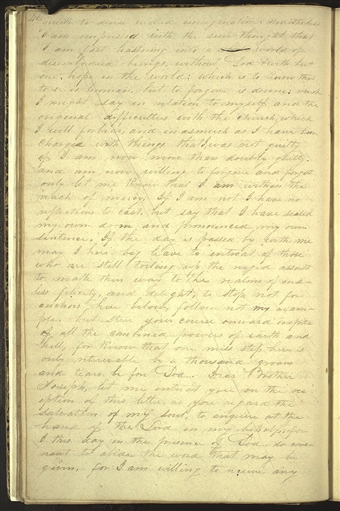 I am impressed with the sure thought that
I am fast hastening into a world of
disembodied beings, without God & with but
one hope in the world; which is to know that
to err is human, but to forgive is devine: much
I might say in relation to myself and the
original difficulties with the church, which
I will forbear, and in asmuch as I have been
charged with things that I was not guilty
of I am now more than doubly guilty.
and am now willing to forgive and forget
only let me know that I am within the
reach of mercy. If I am not I have no
reflections to cast, but say that I have sealed
my own doom and pronounced my own
sentence. If the day is passed by with me
may I here beg leave to entreat of those
who are still toiling up the rugged assent
to make their way to the realms of end-
less felicity, and delight, to stop not for
anchors here below, follow not my exam-
ple, but steer your course onward in spite
of all the combined powers of earth and
hell, for know that one miss step here is
only retrievable by a thousand groans
and tears before God. Dear Brother
Joseph, let me entreat you on the re-
ception of this letter, as you regard the
salvation of my soul, to enquire at the
hand of the Lord in my behalf; for
I this day in the presence of God, do cove-
nant to abide the word that may be
given, for I am willing to receive any